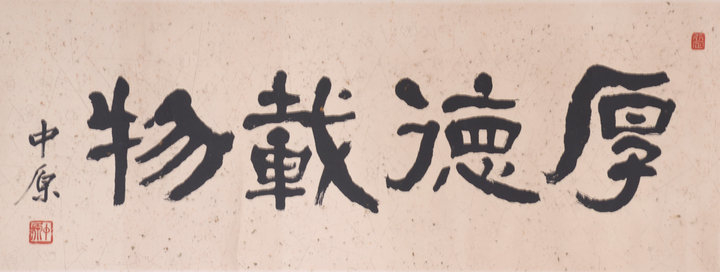 厚德載物
中原